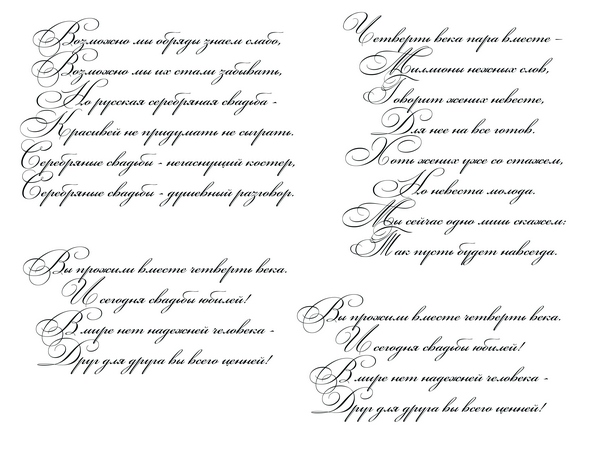 Возможно мы обряды знаем слабо,
Возможно мы их стали забывать,
Но русская серебряная свадьба -
Красивей не придумать не сыграть.
Серебряные свадьбы - негаснущий костер,
Серебряные свадьбы - душевный разговор.
Вы прожили вместе четверть века.
И сегодня свадьбы юбилей!
В мире нет надежней человека -
Друг для друга вы всего ценней!
Четверть века пара вместе –
Миллионы нежных слов,
Говорит жених невесте,
Для нее на все готов.
Хоть жених уже со стажем,
Но невеста молода.
Мы сейчас одно лишь скажем:
Так пусть будет навсегда.
Вы прожили вместе четверть века.
И сегодня свадьбы юбилей!
В мире нет надежней человека -
Друг для друга вы всего ценней!